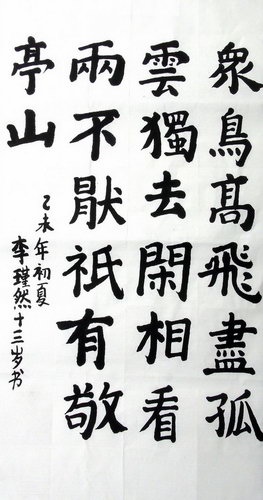 衆鳥髙飛盡孤
雲獨去閑相看
兩不厭祇有敬
亭山
乙未年初夏
李瑾然十三岁书